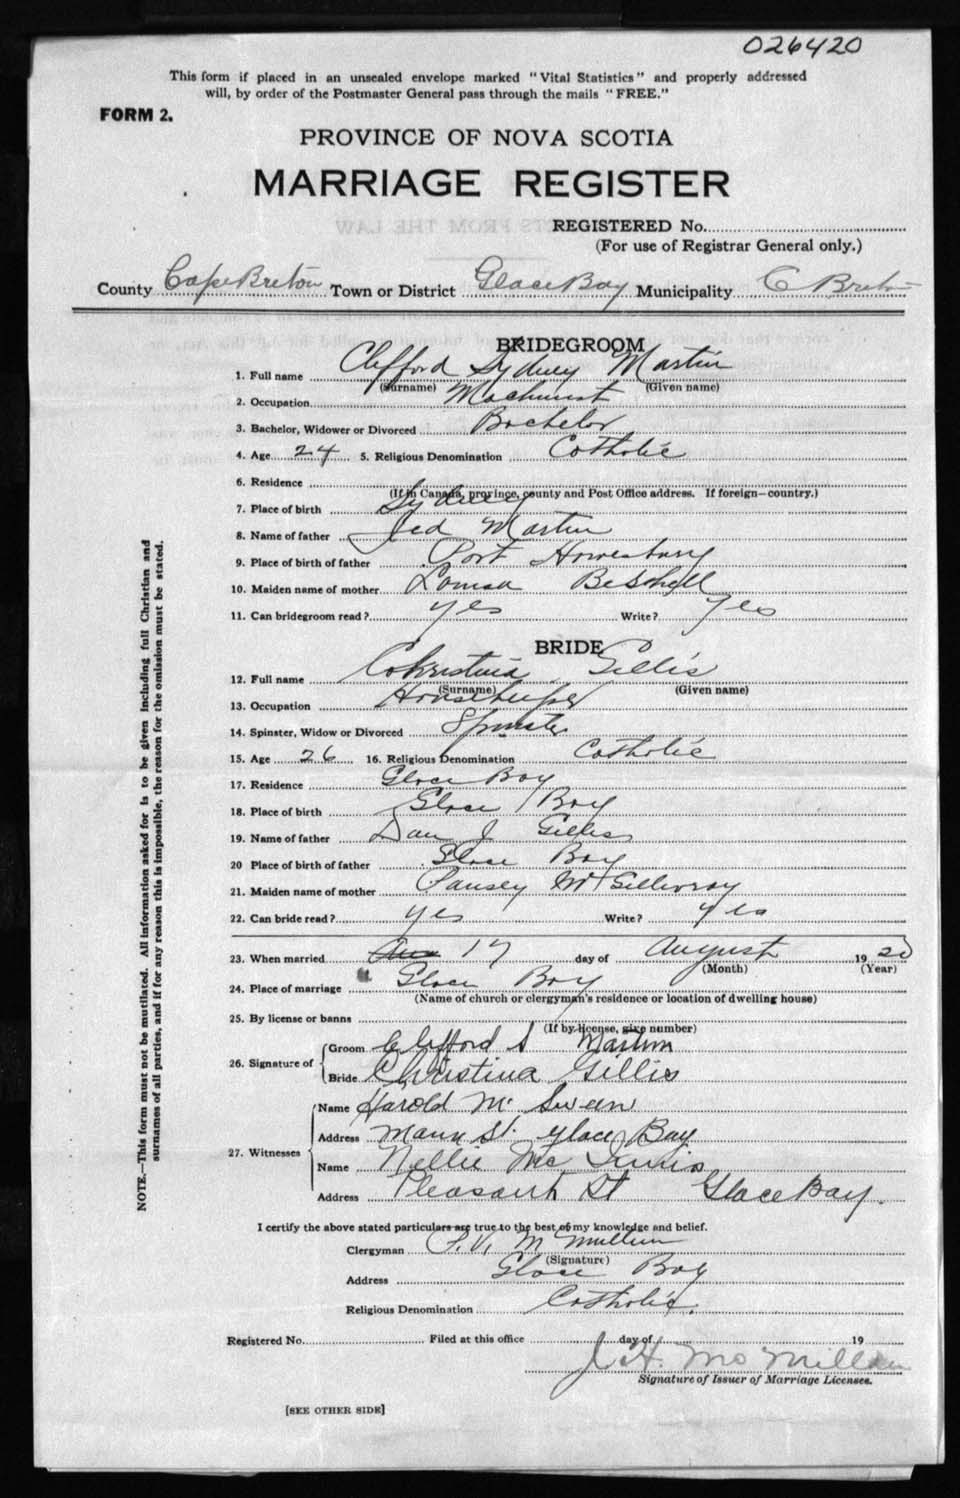 026420
This form if placed in an unsealed envelope marked "Vital Statistics" and properly addressed
will, by order of the Postmaster General pass through the mails "FREE."
FORM 2.
PROVINCE OF NOVA SCOTIA
MARRIAGE REGISTER
REGISTERED No.
(For use of Registrar General only.)
County Cape Breton Town or District Glace Bay Municipality C Breton
BRIDEGROOM
1. Full name Clifford Sydney Martin
(Surname) (Given name)
2. Occupation Machinist
3. Bachelor, Widower or Divorced Bachelor
4. Age 24 5. Religious Denomination Catholic
6. Residence
(If in Canada, province, county and Post Office address. If foreign—country.)
7. Place of birth Sydney
8. Name of father Martin
9. Place of birth of father Port
10. Maiden name of mother Louisa
11. Can bridegroom read? yes Write? yes
BRIDE
12. Full name Gillis
(Surname) (Given name)
13. Occupation Housekeeper
14. Spinster, Widow or Divorced Spinster
15. Age 26 16. Religious Denomination Catholic
17. Residence Glace Bay
18. Place of birth Glace Bay
19. Name of father Dan J Gillis
20 Place of birth of father Glace Bay
21. Maiden name of mother McGillivray
22. Can bride read? yes Write? yes
23. When married 17 day of August 1920
(Month) (Year)
24. Place of marriage Glace Bay
(Name of church or clergyman's residence or location of dwelling house)
25. By license or banns
(If by license, give number)
26. Signature of Groom Clifford S Martin
Bride Christina Gillis
27. Witnesses Name Harold Mc Sween
Address Main St. Glace Bay
Name Nellie Mc Innis
Address Pleasant St Glace Bay.
I certify the above stated particulars are true to the best of my knowledge and belief.
Clergyman
(Signature)
Address Glace Bay
Religious Denomination Catholic.
Registered No. Filed at this office day of 19
J. H. McMillan
Signature of Issuer of Marriage Licenses.
[SEE OTHER SIDE]
NOTE.—This form must not be mutilated. All information asked for is to be given including full Christian and
surnames of all parties, and if for any reason this is impossible, the reason for the omission must be stated.